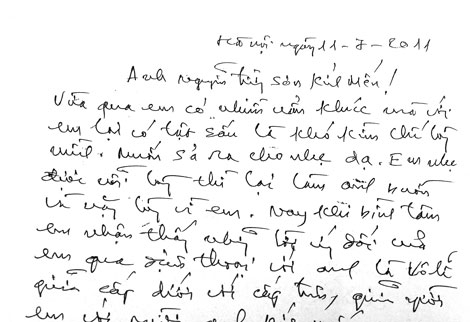 Hà Nội ngày 11-7-2011
Anh Nguyễn Thúy Sơn kính mến!
Vừa qua em có nhiều uẩn khúc mà với
em lại có tật xấu là khó kìm chế bản
mình. Muốn sả ra cho nhẹ dạ. Em nhẹ
được với thì lại làm anh buồn
và vì em. Nay khi bình tâm
em nhận thấy những lời ấy đối với
em qua điện thoại với anh là vô lễ
giữa cấp dưới với cấp trên, giữa người
em với